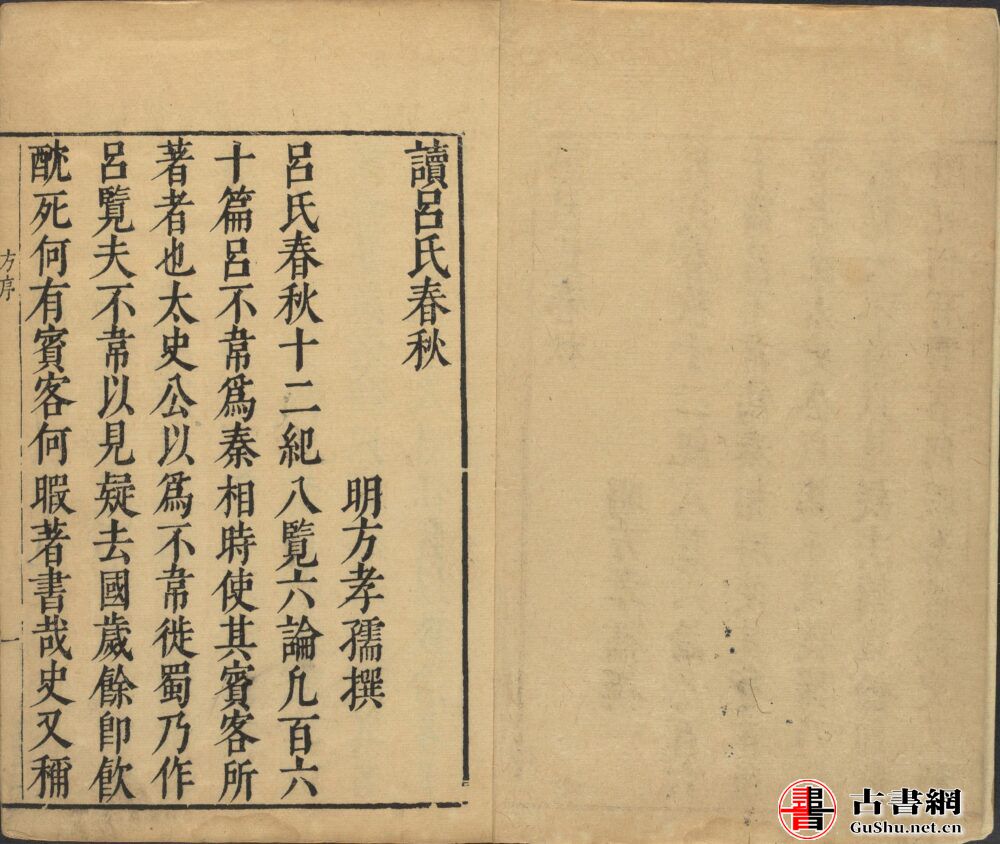 讀呂氏春秋
明方孝孺撰
呂氏春秋十二紀八覽六論凡百六
十篇呂不韋爲秦相時使其賓客所
著者也太史公以爲不韋徙蜀乃作
呂覽夫不韋以見疑去國歲餘卽飮
酖死何有賓客何暇著書哉史又稱
方序
一
書 古書網
GuShu.net.cn